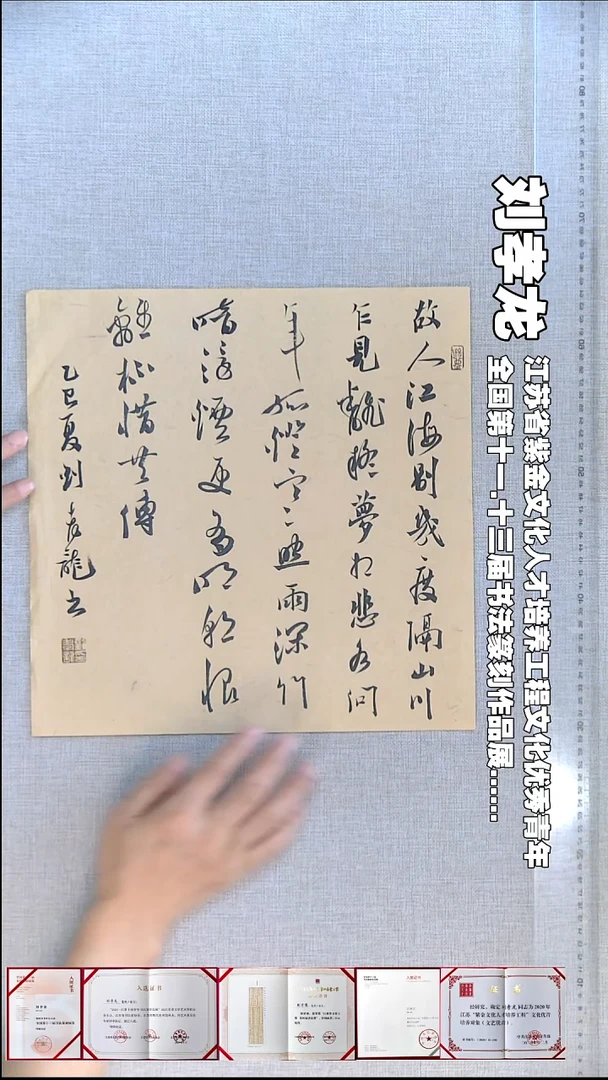 刘孝龙
江苏省紫金文化人才培养工程文化优秀青年
全国第十一.十三届书法篆刻作品展......
故人江海別幾度隔山川
乍見翻疑夢相悲各問
年孤燈寒照雨深竹
暗浮煙更有明朝恨
離杯惜共傳
乙巳夏劉孝龍書
入展证书
入选证书
入展证书
证书
经研究，确定刘孝龙同志为2020年
江苏“紫金文化人才培养工程”文化优青
培养对象（文艺优青）